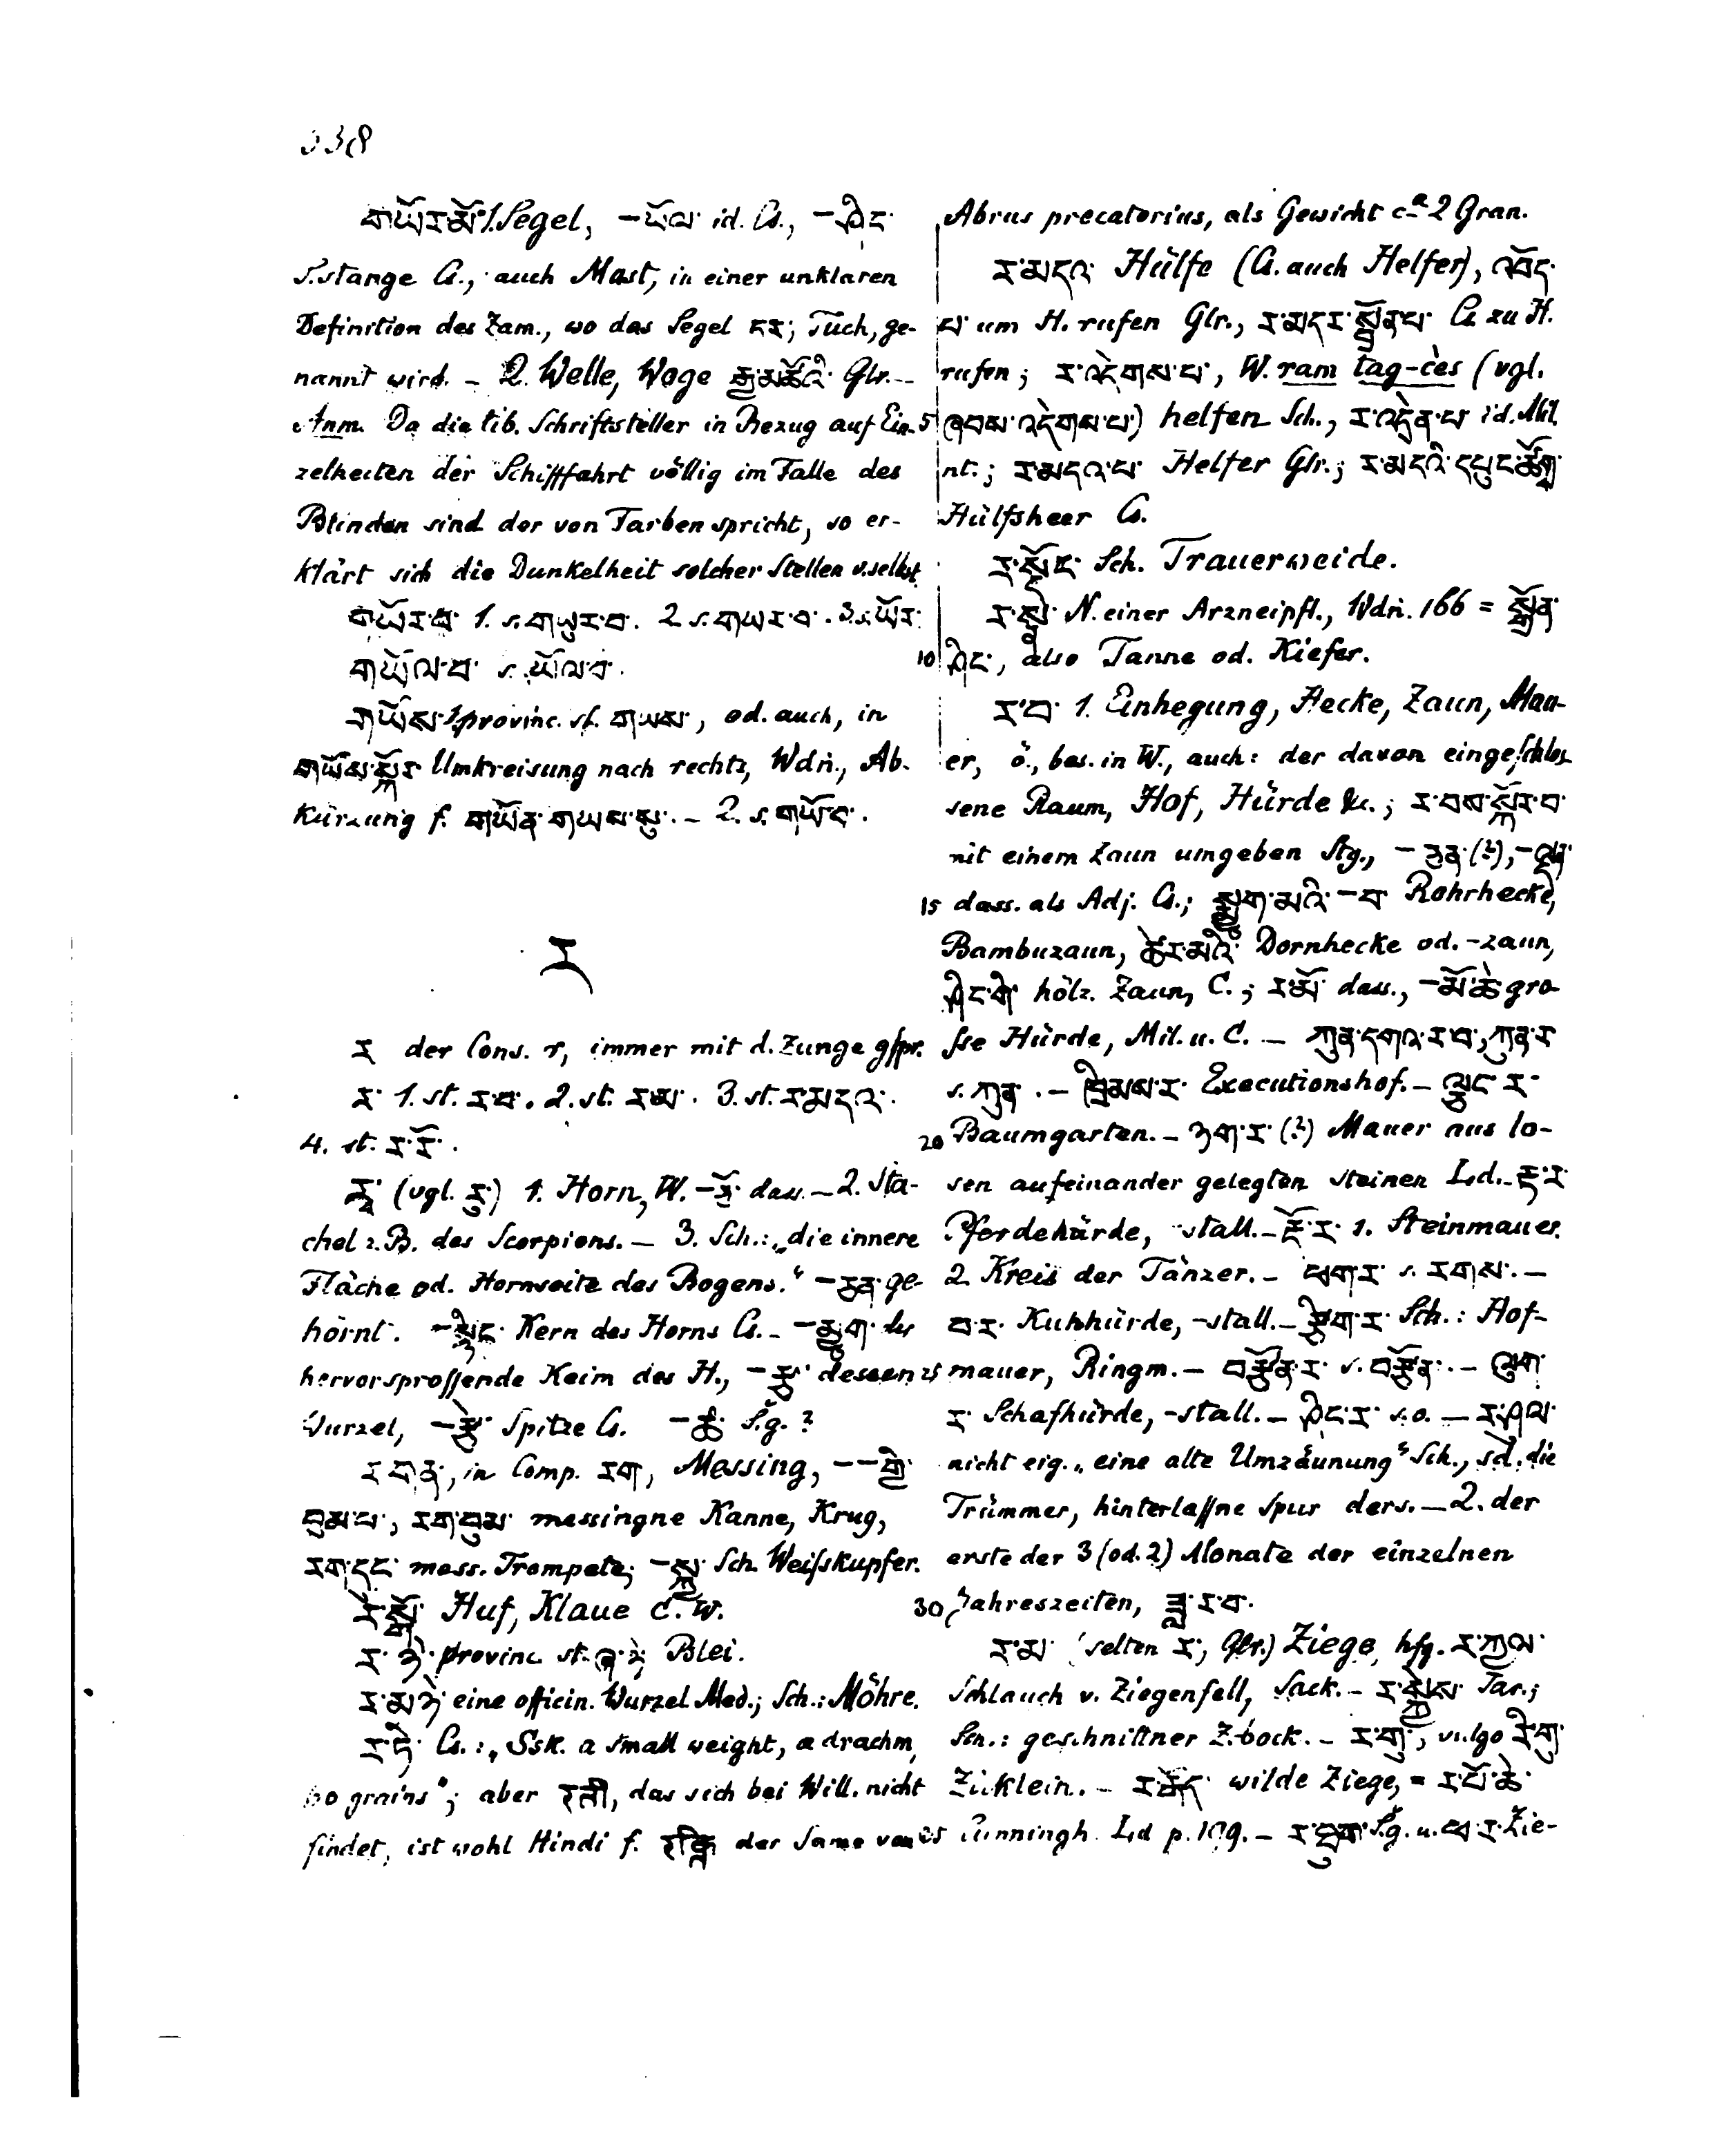 338
གཡོར་མོ་ 1. Segel, – ཡོལ་ id. Cs., – ཤིང་
S.stange Cs., auch Mast, in einer unklaren
Definition des Zam., wo das Segel དར་, Tuch, ge-
nannt wird. – 2. Welle, Woge རྒྱ་མཚོའི་ Glr. –
Anm. Da die tib. Schriftsteller in Bezug auf Ein-
zelheiten der Schifffahrt völlig im Falle des
Blinden sind der von Farben spricht, so er-
klärt sich die Dunkelheit solcher Stellen v. selbst
གཡོར་བ་ 1. s. གཡུར་བ་. 2 s. གཡར་བ་. 3. s. ཡོར་
གཡོལ་བ་ s. ཡོལ་བ་.
གཡོས་ 1. provinc. st. གཡས་, od. auch, in
གཡོས་སྐོར་ Umkreisung nach rechts, Wdṅ., Ab-
kürzung f. གཡོན་གཡས་སུ་. – 2. s. གཡོ་བ་.
ར
ར der Cons. r, immer mit d. Zunge gspr.
ར་ 1. st. ར་བ་. 2. st. ར་མ་. 3. st. ར་མདའ་.
4. st. ར་རོ་.
རྭ་ (vgl. རུ་) 1. Horn, W. – ཅོ་ dass. – 2. Sta-
chel z.B. des Scorpions. – 3. Sch.: „die innere
Fläche od. Hornseite des Bogens.“ – ཅན་ ge-
hörnt. – སྙིང་ Kern des Horns Cs. – – མྱུག་ der
hervorsprossende Keim des H., – རྩ་ dessen
Wurzel, – རྩེ་ Spitze Cs. – ཚོ་ S.g. ?
ར་གན་, in Comp. རག་, Messing, – – གྱི་
བུམ་པ་, རག་བུམ་ messingne Kanne, Krug,
རག་དུང་ mess. Trompete, – སྐྱ་ Sch. Weisskupfer.
Huf, Klaue C. W.
ར་ཉེ་ provinc. st. ཞ་ཉེ་ Blei.
ར་མཉེ་ eine officin. Wurzel Med.; Sch.: Möhre.
ར་ཏི་ Cs.: „Ssk. a small weight, a drachm,
60 grains“; aber रती, das sich bei Will. nicht
findet, ist wohl Hindi f. रक्तिका der Same von
Abrus precatorius, als Gewicht cᵃ 2 Gran.
ར་མདའ་ Hülfe (Cs. auch Helfer), འབོད་
པ་ um H. rufen Glr., ར་མདར་སྦྲོན་པ་ Cs zu H.
rufen; ར་འདེགས་པ་, W. ram tag-ces (vgl.
5 ཞབས་འདེགས་པ་) helfen Sch., ར་འདྲེན་པ་ id. Mil.
nt.; ར་མདའ་པ་ Helfer Glr.; ར་མདའི་དཔུང་ཚོགས་
Hülfsheer Cs.
Sch. Trauerweide.
N. einer Arzneipfl., Wdṅ. 166 = སྒྲོན་
10 ཤིང་, also Tanne od. Kiefer.
ར་བ་ 1. Einhegung, Hecke, Zaun, Mau-
er, ö., bes. in W., auch: der davon eingeschlos-
sene Raum, Hof, Hürde &c.; ར་བས་སྐོར་བ་
mit einem Zaun umgeben Stg., – ཅན་ (?), – ལྡན་
15 dass. als Adj. Cs.; སྨྱུག་མའི་ – བ་ Rohrhecke,
Bambuzaun, ཚེར་མའི་ Dornhecke od. -zaun,
ཤིང་གི་ hölz. Zaun, C.; ར་མོ་ dass., – མོ་ཆེ་ gro-
sse Hürde, Mil. u. C. – ཀུན་དགའ་ར་བ་, ཀུན་ར་
s. ཀུན་. – ཁྲིམས་ར་ Executionshof. – ལྕང་ར་
20 Baumgarten. – ཉག་ར་ (?) Mauer aus lo-
sen aufeinander gelegten Steinen Ld. – རྟ་ར་
Pferdehürde, -stall. – རྡོ་ར་ 1. Steinmauer.
2. Kreis der Tänzer. – ཕག་ར་ s. རགས་. –
བ་ར་ Kuhhürde, -stall. – རྩིག་ར་ Sch.: Hof-
25 mauer, Ringm. – བརྩོན་ར་ s. བརྩོན་. – ལུག་
ར་ Schafhürde, -stall. – ཤིང་ར་ s.o. – ར་ཤུལ་
nicht eig. „eine alte Umzäunung“ Sch., sd. die
Trümmer, hinterlassne Spur ders. – 2. der
erste der 3 (od. 2) Monate der einzelnen
30 Jahreszeiten, ཟླ་ར་བ་.
ར་མ་ (selten ར་, Glr.) Ziege, hfg. ར་ཀྱལ་
Schlauch v. Ziegenfell, Sack. – ར་སྐྱེས་ Tar.;
Sch.: geschnittner Z.bock. – ར་གུ་, vulgo རི་གུ་
Zicklein. – ར་རྒོད་ wilde Ziege, = ར་པོ་ཆེ་
35 Cunningh. Ld p. 199. – ར་ཐུག་ S.g. u. ཕ་ར་ Zie-